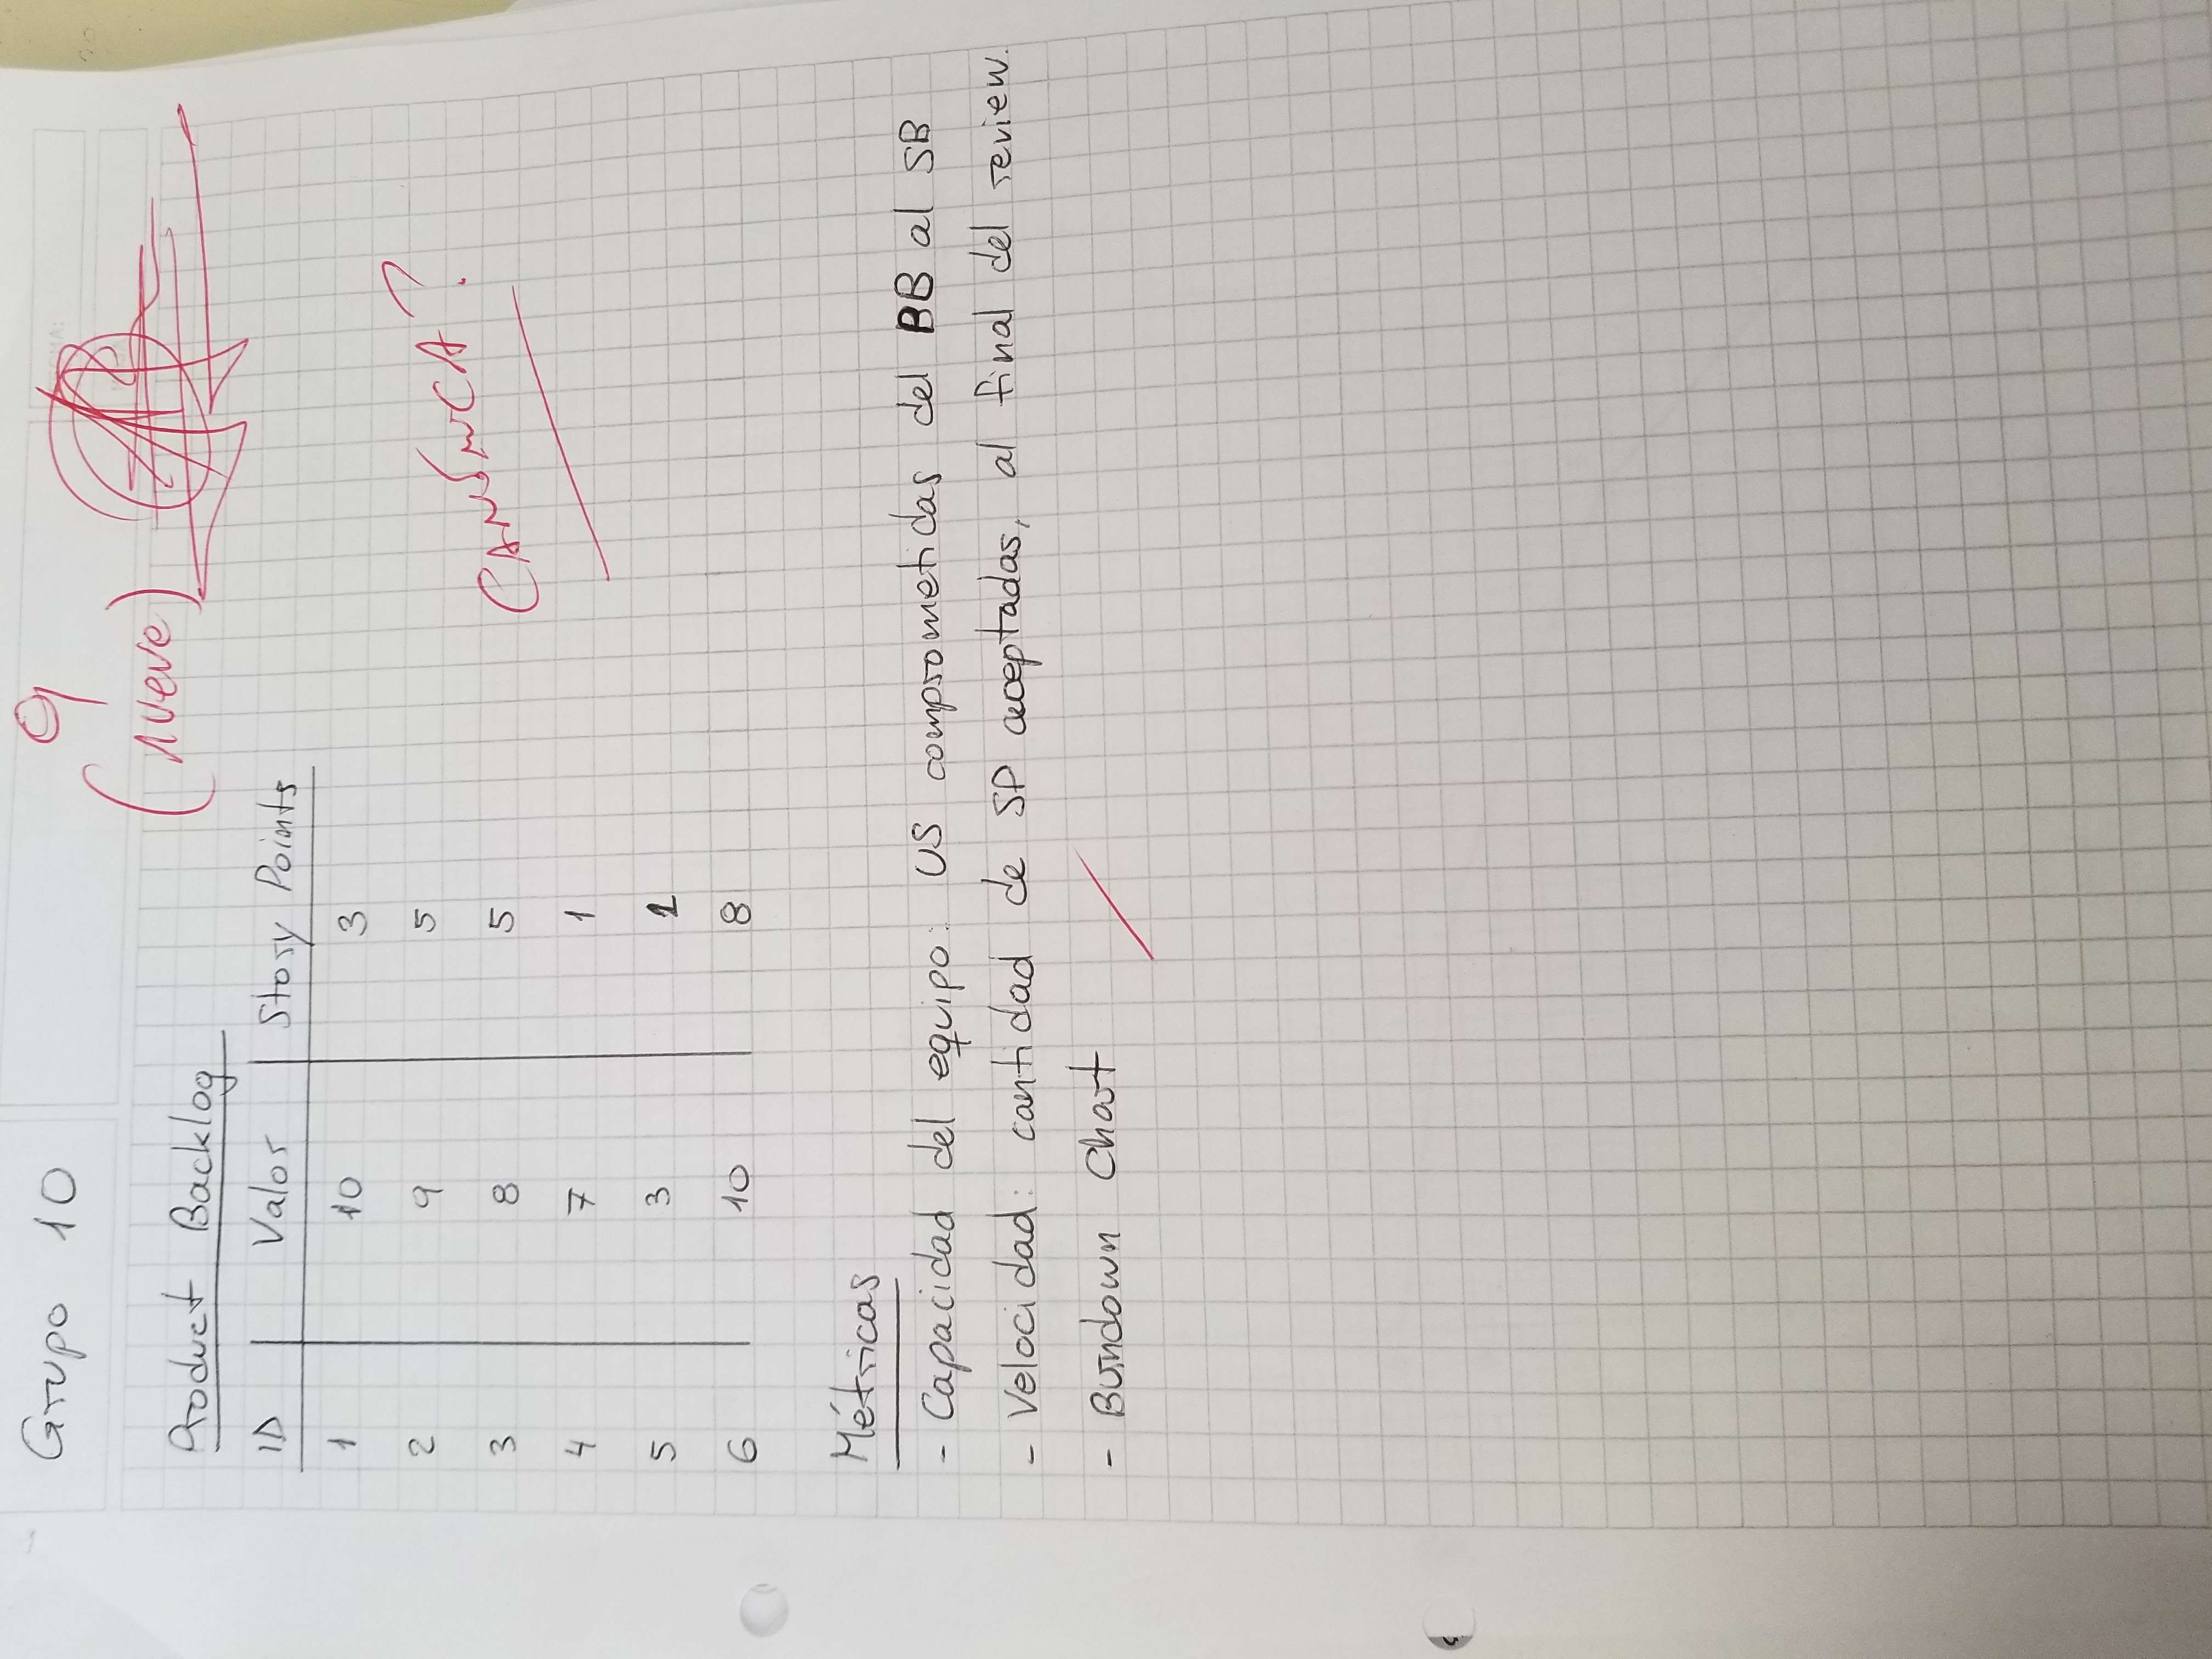 Grupo 10
9
(nueve)
Product Backlog
ID Valor Story Points
1 10 3
2 9 5
3 8 5
4 7 1
5 3 1
6 10 8
CANÓNICA?
Métricas
- Capacidad del equipo: US comprometidas del PB al SB
- Velocidad: cantidad de SP aceptadas, al final del review.
- Burndown Chart